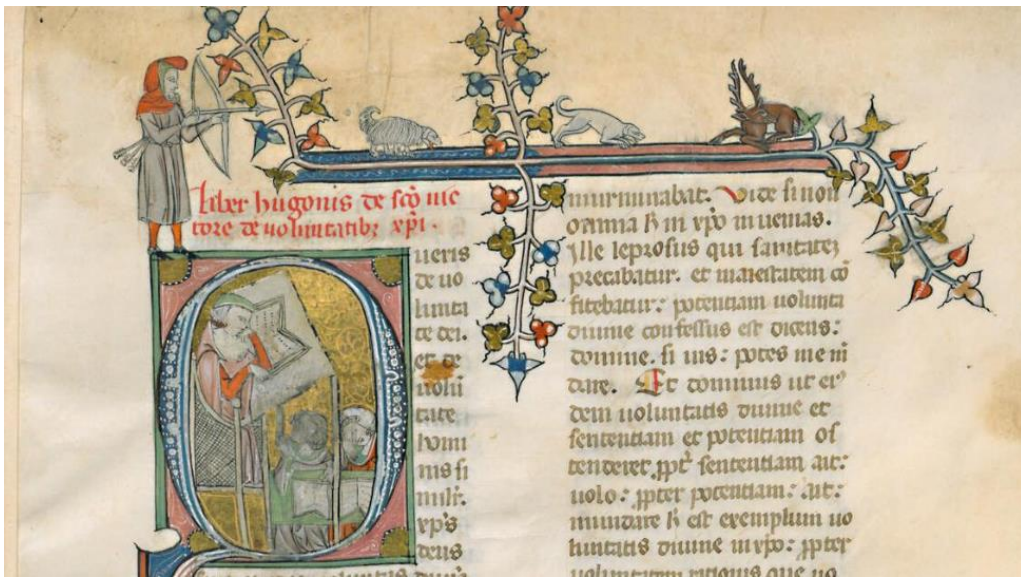 Liber hugonis de sc̄o uic
tore de uoluntatibꝫ xp̄i.
ueris
de uo
lunta
te dei.
et de
uolū
tate
homi
nis si
milr̄.
xp̄s
deus
murmurabat. Vide si non
omnia h̄ in xp̄o inuenias.
Ille leprosus qui sanitatē
precabatur. et maiestatem cō
fitebatur: potentiam uolunta
diuine confessus est dicens:
domine. si uis: potes me m̄
dare. Et dominus ut ei
dem uoluntatis diuine et
sententiam et potentiam os
tenderet. ꝓpt̄ sententiam ait:
uolo: ꝓpter potentiam: ait:
mundare h̄ est exemplum uo
luntatis diuine in xp̄o: ꝓpter
uoluntatem rationis que uo